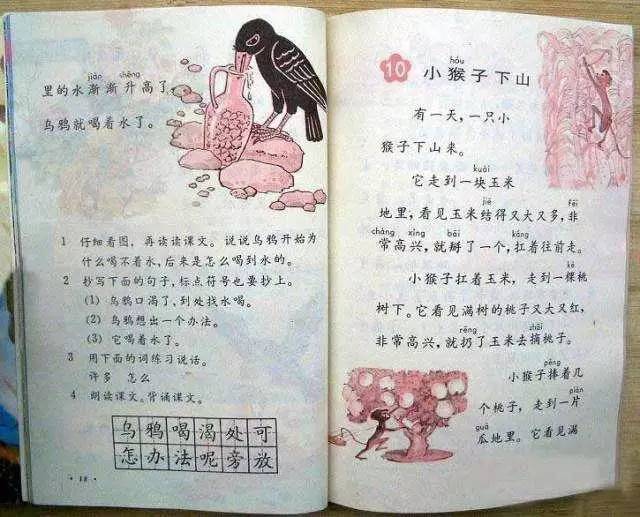 jiàn shēng
里的水渐渐升高了,
乌鸦就喝着水了。
1 仔细看图，再读读课文。说说乌鸦开始为
什么喝不着水,后来是怎么喝到水的。
2 抄写下面的句子,标点符号也要抄上。
(1) 乌鸦口渴了,到处找水喝。
(2) 乌鸦想出一个办法。
(3) 它喝着水了。
3 用下面的词练习说话。
许多 怎么
4 朗读课文。背诵课文。
乌鸦喝渴处可
怎办法呢旁放
· 18 ·
hóu
10 小猴子下山
有一天,一只小
猴子下山来。
kuài
它走到一块玉米
jiē fēi
地里,看见玉米结得又大又多,非
cháng xìng bāi káng
常高兴,就掰了一个,扛着往前走。
小猴子扛着玉米，走到一棵桃
树下。它看见满树的桃子又大又红,
rēng zhāi
非常高兴,就扔了玉米去摘桃子。
pěng
小猴子捧着几
piàn
个桃子，走到一片
guā
瓜地里。它看见满